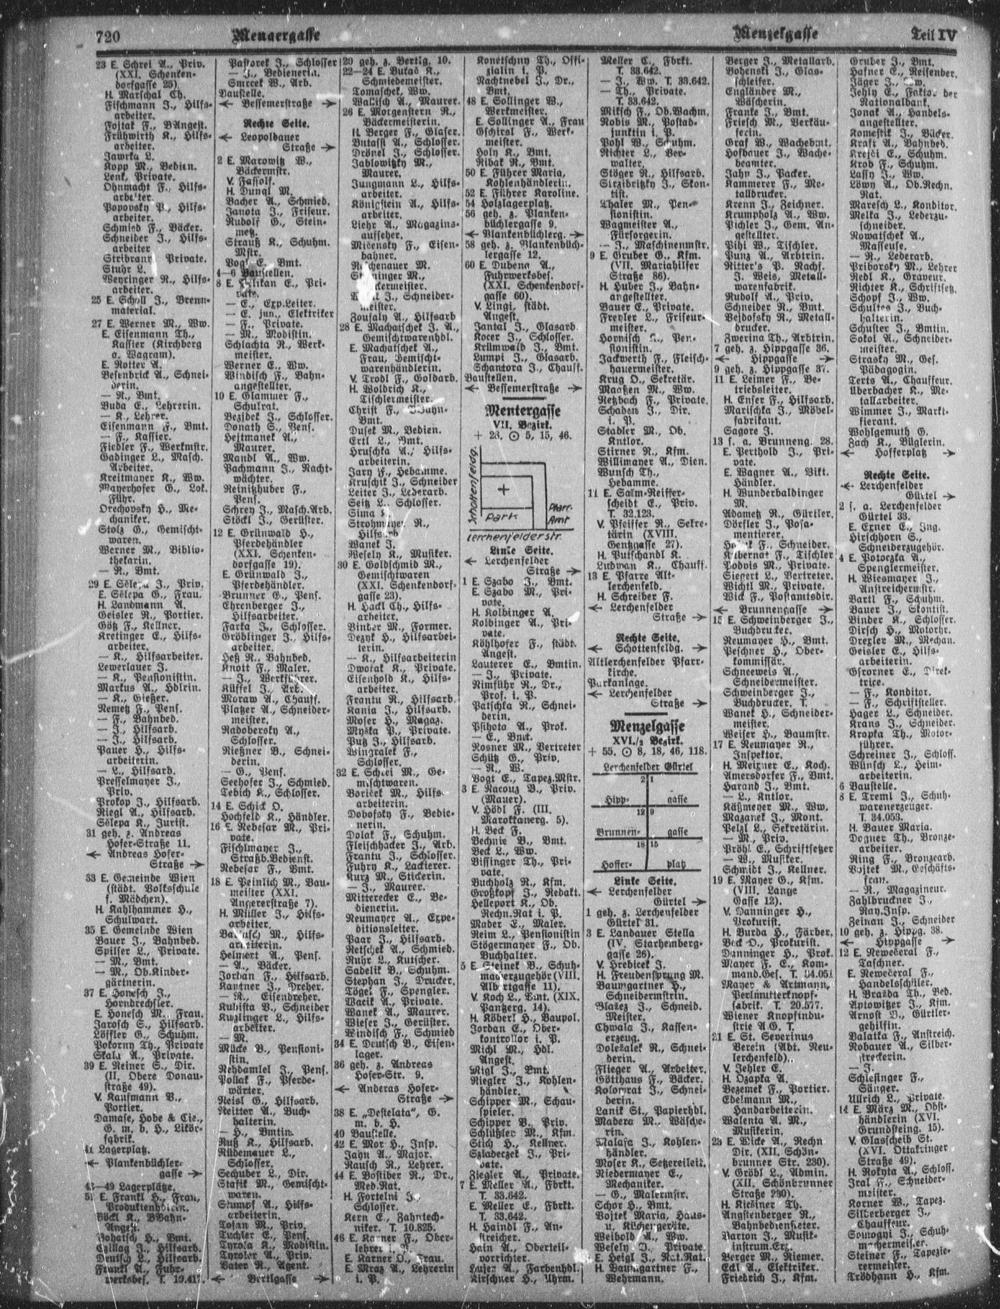 720 Menaergasse Menzelgasse Teil IV
23 E. Schrei A., Priv.
(XXI, Schenken-
dorfgasse 25).
H. Marschal Ch.
Fischmann J., Hilfs-
arbeiter.
Fojtak F., BAngest.
Frühwirth K., Hilfs-
arbeiter.
Jawrka L.
Kopp M., Bedien.
Lenk, Private.
Ohnmacht F., Hilfs-
arbeiter.
Popovsky P., Hilfs-
arbeiter.
Schmied F., Bäcker.
Schneider J., Hilfs-
arbeiter.
Stribrany Private.
Stuhr L.
Weyringer R., Hilfs-
arbeiter.
25 E. Scholl J., Brenn-
material.
27 E. Werner M., Ww.
E. Eisenmann Th.,
Kassier (Kirchberg
a. Wagram).
E. Rotter A.
Besenbrick A., Schnei-
derin.
— R., Bmt.
Buda E., Lehrerin.
— K., Lehrer.
Eisenmann F., Bmt.
— F., Kassier.
Fiedler F., Werkmstr.
Gadinger L., Masch.
Arbeiter.
Kreitmayer K., Ww.
Mayerhofer G., Lok.
Führ.
Orechovsky H., Me-
chaniker.
Stolz G., Gemischt-
waren.
Werner M., Biblio-
thekarin.
— R., Bmt.
29 E. Sölepa J., Priv.
E. Sölepa G., Frau.
H. Landmann A.
Geisler R., Portier.
Götz F., Kellner.
Kretinger E., Hilfs-
arbeiter.
— K., Hilfsarbeiter.
Lewerlotter J.
— K., Pensionistin.
Markus A., Hdlrin.
— K., Gießer.
Nemetz F., Pens.
— F., Bahnbed.
— J., Hilfsarb.
— J., Hilfsarb.
Pauer H., Hilfs-
arbeiterin.
— L., Hilfsarb.
Presselmayer J.,
Priv.
Prokop J., Hilfsarb.
Riegl A., Hilfsarb.
Sölepa K., Jurist.
31 geh. z. Andreas
Hofer-Straße 11.
← Andreas Hofer-
Straße →
33 E. Gemeinde Wien
(städt. Volksschule
f. Mädchen).
H. Kahlhammer H.,
Schulwart.
35 E. Gemeinde Wien
Bauer J., Bahnbed.
Spilker L., Private.
— M., Bmt.
— M., Ob.Kinder-
gärtnerin.
37 E. Honesch J.,
Horndrechsler.
E. Honesch M., Frau.
Jarosch S., Hilfsarb.
Löffler G., Schuhm.
Pokorny Th., Private
Skala A., Private.
39 E. Reiner S., Dir.
(II, Obere Donau-
straße 49).
V. Kaufmann B.,
Portier.
Damase, Hobe & Cie.,
G. m. b. H., Likör-
fabrik.
41 Lagerplatz.
← Plankenbüchler-
gasse →
43—49 Lagerplätze.
51 E. Frankl H., Frau,
Pastorek J., Schlosser
— J., Bedienerin.
Smrcek W., Arb.
Baustelle.
← Bessemerstraße →
Rechte Seite.
← Leopoldauer
Straße →
2 E. Marowitz W.,
Bäckermstr.
V. Fassolt.
H. Dungl M.
Bacher A., Schmied.
Janota J., Friseur.
Rudolf G., Stein-
metz.
Strauß K., Schuhm.
Mstr.
4—6 Baustellen.
8 E. Pelikan E., Pri-
vate.
— E., Exp.Leiter.
— E. jun., Elektriker
— F., Private.
— M., Modistin.
Schlachta R., Werk-
meister.
Werner E., Ww.
Windisch F., Bahn-
angestellter.
10 E. Glamuer F.,
Schulrat.
Bezidek J., Schlosser.
Donath S., Pens.
Hejtmanek A.,
Maurer.
Mandl A., Ww.
Pachmann J., Nacht-
wächter.
Reinitzhuber F.,
Pens.
Schrey J., Masch.Arb.
Stöckl J., Gerüster.
12 E. Grünwald H.,
Pferdehändler
(XXI, Schenken-
dorfgasse 19).
E. Grünwald J.,
Pferdehändler.
Brunner G., Pens.
Ehrenberger J.,
Hilfsarbeiter.
Farka J., Schlosser.
Gröblinger J., Hilfs-
arbeiter.
Heß R., Bahnbed.
Knott F., Maler.
— J., Werkführer.
Küssel J., Arb.
Moraw A., Chauff.
Platzer A., Schneider-
meister.
Radoberský A.,
Schlosser.
Rießner B., Schnei-
derin.
— G., Pens.
Seehofer J., Schmied.
Tebich K., Schlosser.
14 E. Schick O.
Hochfeld K., Händler.
16 E. Nebesar M., Pri-
vate.
Fischlmayer J.,
Straßb.Bedienst.
Nebesar F., Bmt.
18 E. Peinlich M., Bau-
meister (XXI,
Angererstraße 7).
H. Miller J., Hilfs-
arbeiter.
Helmert A., Pens.
— A., Bäcker.
Jordan F., Hilfsarb.
Kantner J., Dreher.
— R., Eisendreher.
Kubista B., Schneider
Kutzlinger L., Hilfs-
arbeiter.
— M.
Mücke B., Pensioni-
stin.
Rehdamlel J., Pens.
Pollak F., Pferde-
wärter.
Reisl G., Hilfsarb.
Reitter A., Buch-
halterin.
— H., Bmtin.
Rutz K., Hilfsarb.
Rüdemauer L.,
Schlosser.
Seehuber L., Dir.
Stasik M., Gemischt-
waren.
Stumpf A., Hilfs-
arbeiterin.
Tojan M., Priv.
Tuchler E., Pens.
Tyrola K., Modistin.
Tyroler A., Priv.
Vater R., Agent.
← Bertlgasse →
20 geh. z. Bertlg. 10.
22—24 E. Bukač K.,
Schmiedemeister.
Tomaschek, Ww.
Walisch A., Maurer.
26 E. Morgenstern R.,
Bäckermeisterin.
H. Berger F., Glaser.
Butassi A., Schlosser.
Dröstl J., Schlosser.
Jablowitzky M.,
Maurer.
Jungmann L., Hilfs-
arbeiter.
Königstein A., Hilfs-
arbeiter.
Liehr A., Magazins-
aufseher.
Micensky F., Eisen-
bahner.
Zoufalp A., Hilfsarb
28 E. Machatschek J. A.,
Gemischtwarenhdl.
E. Machatschek A.,
Frau, Gemischt-
warenhändlerin.
V. Trodl F., Goldarb.
H. Woldrich K.,
Tischlermeister.
Christ F., BBahn-
Bmt.
Dusek M., Bedien.
Ertl L., Bmt.
Hruschka A., Hilfs-
arbeiterin.
Jary F., Hebamme.
Kruschik J., Schneider
Leiter J., Lederarb.
Seitz L., Schlosser.
Sima J.
Strohmayer R.,
Hilfsarb.
Wanek J.
Wesely R., Musiker.
30 E. Goldschmid M.,
Gemischtwaren
(XXI, Schenkendorf-
gasse 23).
H. Hackl Th., Hilfs-
arbeiter.
Binder M., Former.
Dezyk H., Hilfsarbei-
terin.
— K., Hilfsarbeiterin
Dworak K., Private.
Eisenhold K., Hilfs-
arbeiter.
Frantu R., Hilfsarb.
Kania J., Hilfsarb.
Moser H., Magaz.
Myska P., Private.
Putz J., Hilfsarb.
Wingralek F.,
Schlosser.
32 E. Schrei M., Ge-
mischtwaren.
Boricek M., Hilfs-
arbeiterin.
Dobofsky F., Bedie-
nerin.
Dolak F., Schuhm.
Fleischhacker J., Arb.
Frantu J., Schlosser.
Fuhrn K., Lackierer.
Kurz M., Stickerin.
— J., Maurer.
Mitterecker E., Be-
dienerin.
Neumayer A., Expe-
ditionsleiter.
Paar J., Hilfsarb.
Retschek A., Schmied.
Ruhr L., Kutscher.
Sadelik B., Schuhm.
Stephan J., Drucker.
Tögel F., Spengler.
Wacik A., Private.
Wanek A., Maurer.
Wieser J., Gerüster.
Wondrisch F., Schmied
34 E. Deutsch B., Eisen-
lager.
36 geh. z. Andreas
Hofer-Str. 9.
← Anderas Hofer-
Straße →
38 E. „Destelata", G.
m. b. H.
40 Baustelle.
42 E. Mor H., Insp.
Jahn A., Major.
Rausch R., Lehrer.
44 E. Bostiber R., Dr.,
Med.Rat.
H. Fortelni J.,
Schlosser.
Kern E., Zahntech-
niker. T. 10.825.
46 E. Karner F., Ober-
lehrer i. P.
E. Karner O., Frau.
E. Mraz A., Lehrerin
i. P.
Konetschny Th., Offi-
zialin i. P.
Rachtnebel J., Dr.,
Bmt.
48 E. Sollinger W.,
Werkmeister.
E. Sollinger A., Frau
Gschiral F., Werk-
meister.
Holy K., Bmt.
Ribak R., Bmt.
50 E. Führer Maria,
Kohlenhändlerin.
52 E. Führer Karoline.
54 Holzlagerplatz.
56 geh. z. Planken-
büchlergasse 9.
← Plankenbüchlerg. →
58 geh. z. Plankenbüch-
lergasse 12.
60 E. Dubeny A.,
Fuhrwerksbes.
(XXI, Schenkendorf-
gasse 60).
V. Lingl, städt.
Angest.
Jantal J., Glasarb.
Kocer J., Schlosser.
Kriimwald J., Bmt.
Lumpi J., Glasarb.
Schantora J., Chauff.
Baustellen.
← Bessemerstraße →
Mentergasse
VII. Bezirk.
+ 28, ⊙ 5, 15, 46.
Schottenfeldg.
Park
Pfarr-
Amt
Lerchenfelderstr.
Linke Seite.
← Lerchenfelder
Straße →
1 E. Szabo J., Bmt.
E. Szabo M., Pri-
vate.
H. Kolbinger A.
Kolbinger A., Pri-
vate.
Köhlhofer F., städt.
Angest.
Lauterer E., Bmtin.
— J., Private.
Nimführ R., Dr.,
Prof. i. P.
Patschka R., Schnei-
derin.
Psihota A., Prof.
— E., Bmt.
Rosner M., Vertreter
Schütz G., Priv.
— R., W.
Vogt E., Tapez.Mstr.
3 E. Nacouz B., Priv.
(Mauer).
V. Hödl F. (III,
Marokkanerg. 5).
H. Beck F.
Bechnie B., Bmt.
Beck L., Ww.
Bissinger Th., Pri-
vate.
Buchholz R., Kfm.
Großkopf J., Redakt.
Helleport K., Ob.
Rechn.Rat i. P.
Mader E., Maler.
Reim L., Pensionistin
Stögermayer F., Ob.
Buchhalter.
5 E. Steinek B., Schuh-
machezugehör (VIII,
Albertgasse 11).
V. Koch L., Bmt. (XIX,
Panzerg. 14).
H. Köberl H., Baupol.
Jordan E., Ober-
kontrollor i. P.
Michl M., Hdl.
Angest.
Migl J., Bmt.
Riegler J., Kohlen-
händler.
Schipper M., Schau-
spieler.
Schipper B., Priv.
Schlützler M., Kfm.
Stich H., Kellner.
Szladeczek J., Pri-
vate.
Ziegler A., Private.
7 E. Meller A., Fbrkt.
T. 33.642.
E. Meller E., Fbrkt.
T. 33.642.
H. Handl F., An-
streicher.
Hain A., Oberteil-
vorrichter.
Kirschner H., Uhrm.
Meller C., Fbrkt.
T. 33.642.
— J., Ww. T. 33.642.
— Th., Private.
T. 33.642.
Mitsch F., Ob.Wachm.
Nobis M., Postad-
junktin i. P.
Pohl W., Schuhm.
Richter L., Ver-
walter.
Stöger R., Hilfsarb.
Strzybrizky J., Skon-
tist.
Thaler M., Pen-
sionistin.
Wagmeister A.,
Fürsorgerin.
— J., Maschinenmstr.
9 E. Gruber G., Kfm.
(VII, Mariahilfer
Straße 86).
H. Huber J., Bahn-
angestellter.
Bauer E., Private.
Freyler L., Friseur-
meister.
Hornisch A., Pen-
sionistin.
Jackwerth F., Fleisch-
hauermeister.
Krug O., Sekretär.
Maaßen M., Ww.
Netzbach F., Private.
Schaden J., Dir.
i. P.
Stadler M., Ob.
Kntlor.
Stirner R., Kfm.
Willimayer A., Dien.
Wunsch Th.,
Hebamme.
11 E. Salm-Reiffer-
scheidt E., Priv.
T. 32.123.
V. Pfeiffer R., Sekre-
tärin (XVIII,
Gentzgasse 27).
H. Putschandl K.
Ludwan K., Chauff.
13 E. Pfarre Alt-
lerchenfeld.
H. Schreiber F.
← Lerchenfelder
Straße →
Rechte Seite.
← Schottenfeldg. →
Altlerchenfelder Pfarr-
kirche.
Parkanlage.
← Lerchenfelder
Straße →
Menzelgasse
XVI./2 Bezirk.
+ 55, ⊙ 8, 18, 46, 118.
Lerchenfelder Gürtel
2 1
Hipp- gasse
12 9
Brunnen- gasse
18 15
Hoffer- platz
Linke Seite.
← Lerchenfelder
Gürtel →
1 geh. z. Lerchenfelder
Gürtel 31.
3 E. Landauer Stella
(IV, Starhemberg-
gasse 26).
V. Hrebicek J.
H. Freudensprung M.
Baumgartner H.,
Schneidermstrin.
Blatez J., Schneid.
Meister.
Chwala J., Kassen-
erzeug.
Dolezalek R., Schnei-
derin.
Flieger A., Arbeiter.
Götthaus F., Bäcker.
Kolowrat J., Schnei-
derin.
Lanik St., Papierhdl.
Madera M., Wäsche-
rin.
Malasa J., Kohlen-
händler.
Moser K., Setzereileit.
Niedermaner E.,
Mechaniker.
— G., Malermstr.
Schor H., Bmt.
Vojtek Maria, Haus-
u. Küchengeräte.
Weibold A., Ww.
Wesely D., Private.
5 E. Heigl J., Art.Rat.
H. Baumgartner F.,
Wehrmann.
Berger J., Metallarb.
Bohenski J., Glas-
schleifer.
Engländer M.,
Wäscherin.
Franke J., Bmt.
Friesch M., Verkäu-
ferin.
Graf W., Wachebmt.
Hofbauer J., Wache-
beamter.
Jahn J., Packer.
Kammerer F., Me-
talldrucker.
Krenn J., Zeichner.
Krumpholz A., Ww.
Pichler J., Gem. An-
gestellter.
Pihl W., Tischler.
Punz A., Arbtrin.
Ritter's P. Nachf.
J. Weis, Metall-
warenfabrik.
Rudolf A., Priv.
Schneider R., Bmt.
Vejdofsky R., Metall-
drucker.
Zwerina Th., Arbtrin.
7 geh. z. Hippgasse 36.
← Hippgasse →
9 geh. z. Hippgasse 37.
11 E. Leimer F., Be-
triebsleiter.
H. Enser F., Hilfsarb.
Marischka J., Möbel-
fabrikant.
Sagore J.
13 s. a. Brunneng. 28.
E. Perthold J., Pri-
vate.
E. Wagner A., Vikt.
Händler.
H. Wunderbaldinger
M.
Adametz R., Gürtler.
Dörfler J., Posa-
mentierer.
Hauk F., Schneider.
Kibernat F., Tischler
Podvis M., Private.
Siegert L., Vertreter.
Wichtl M., Private.
Wick F., Postamtsdir.
← Brunnengasse →
15 E. Schweinberger J.,
Buchdrucker.
Neumayer H., Bmt.
Peschner H., Ober-
kommissär.
Schneeweis A.,
Schneidermeister.
Schweinberger J.,
Buchdrucker. T.
Wanek H., Schneider-
meister.
Weiser H., Baumstr.
17 E. Neumayer R.,
Inspektor.
H. Meixner E., Koch.
Amersdorfer F., Bmt.
Harand J., Bmt.
— L., Kntlor.
Käßmeyer M., Ww.
Mazanek J., Mont.
Pelzl L., Sekretärin.
— M., Priv.
Pröhl E., Schriftsetzer
— W., Musiker.
Schmidt J., Kellner.
19 E. Mayer G., Kfm.
(VIII, Lange
Gasse 12).
V. Danninger H.,
Prokurist.
H. Burda H., Färber.
Beck O., Prokurist.
Danninger H., Prok.
Mayer F. E., Kom-
mand.Ges. T. 34.051
Mayer & Artmann,
Perlmutterknopf-
fabrik. T. 20.577.
Wiener Knopfindu-
strie AG. T.
21 E. St. Severinus
Verein (Abt. Neu-
lerchenfeld).
V. Jehler E.
H. Ozapka A.
Bezemek F., Portier.
Edelmann M.,
Handarbeiterin.
Walenta A. M.,
Musikerin.
23 E. Wicke A., Rechn.
Dir. (XII, Schön-
brunner Str. 230).
V. Gröbl L., Admin.
(XII, Schönbrunner
Straße 230).
H. Kießner Th.
Angstenberger R.,
Bahnbediensteter.
Barton J., Musik-
instrum.Erz.
Berger M., Riemer.
Eckl A., Elektriker.
Friedrich J., Kfm.
Gruber J., Bmt.
Hafner E., Reisender.
Jäger J., W.
Jehly E., Fakto. der
Nationalbank.
Jonak A., Handels-
angestellter.
Komeßik J., Bäcker.
Kraft A., Bahnbed.
Krejci E., Schuhm.
Krob F., Schuhm.
Lassy J., Ww.
Löwy A., Ob.Rechn.
Rat.
Maresch L., Konditor.
Melka J., Lederzu-
schneider.
Nowatschek A.,
Masseuse.
— R., Lederarb.
Priborsky M., Lehrer
Redl K., Graveur.
Richter K., Schriftsetz.
Schopf J., Ww.
Schultes J., Buch-
halterin.
Schuster J., Bmtin.
Sokol A., Schneider-
meister.
Straska M., Ges.
Pädagogin.
Terta A., Chauffeur.
Überbacher K., Me-
tallarbeiter.
Wimmer J., Markt-
fierant.
Wohlgemuth G.
Zach K., Büglerin.
← Hofferplatz →
Rechte Seite.
← Lerchenfelder
Gürtel →
2 s. a. Lerchenfelder
Gürtel 33.
E. Exner E., Ing.
Hirschhorn S.,
Schneiderzugehör.
4 E. Potoczka A.,
Spenglermeister.
H. Wiesmayer J.,
Anstreichermstr.
Bartl F., Schuhm.
Bauer J., Skontist.
Binder K., Schlosser.
Dirsch H., Motorhr.
Drexler M., Mechan.
Geisler E., Hilfs-
arbeiterin.
Gxorner E., Direk-
trice.
— F., Konditor.
— F., Schriftsteller.
Hager L., Schneider.
Krans J., Schneider.
Kropka Th., Motor-
führer.
Schreiner J., Schloss.
Wünsch L., Heim-
arbeiterin.
6 Baustelle.
8 E. Treml J., Schuh-
warenerzeuger.
T. 34.053.
H. Bauer Maria.
Dogner Th., Bronze-
arbeiterin.
Ring F., Bronzearb.
Vojtek M., Geschäfts-
frau.
— R., Magazineur.
Zahlbruckner J.,
Ray.Insp.
Zeinan J., Schneider
10 geh. z. Hippg. 38.
← Hippgasse →
12 E. Neweceral F.,
Taschner.
E. Neweceral F.,
Handelschüler.
H. Braida Th., Bed.
Antowitzer J., Kfm.
Arnost D., Gürtler-
gehilfin.
Balatka F., Anstreich.
Nobauer A., Silber-
steckerin.
— J.
Schlesinger F.,
Sänger.
Ullrich L., Private.
14 E. März M., Obst-
händlerin (XVI,
Grundsteing. 15).
V. Glascheib St.
(XVI, Ottakringer
Straße 49).
H. Rokyta A., Schloss.
Iral F., Schneider-
meister.
Korner W., Tapez.
Silberberger J.,
Chauffeur.
Somogyi J., Schuh-
machermeister.
Steiner F., Tapezie-
rermeister.
Trödhann H., Kfm.